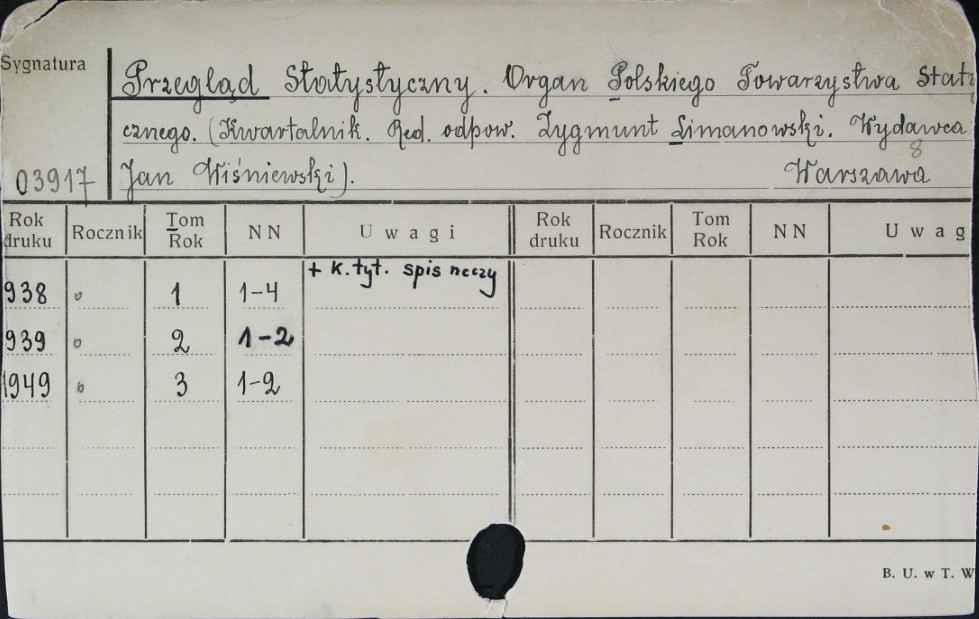 Sygnatura
Przegląd Statystyczny. Organ Polskiego Towarzystwa Staty
cznego. (Kwartalnik. Red. odpow. Zygmunt Limanowski. Wydawca
8
03917 Jan Wiśniewski). Warszawa
Rok druku Rocznik Tom Rok NN Uwagi Rok druku Rocznik Tom Rok NN Uwag
+ k. tyt. spis rzeczy
938 o 1 1-4
939 o 2 1-2
1949 b 3 1-2
B. U. w T. W